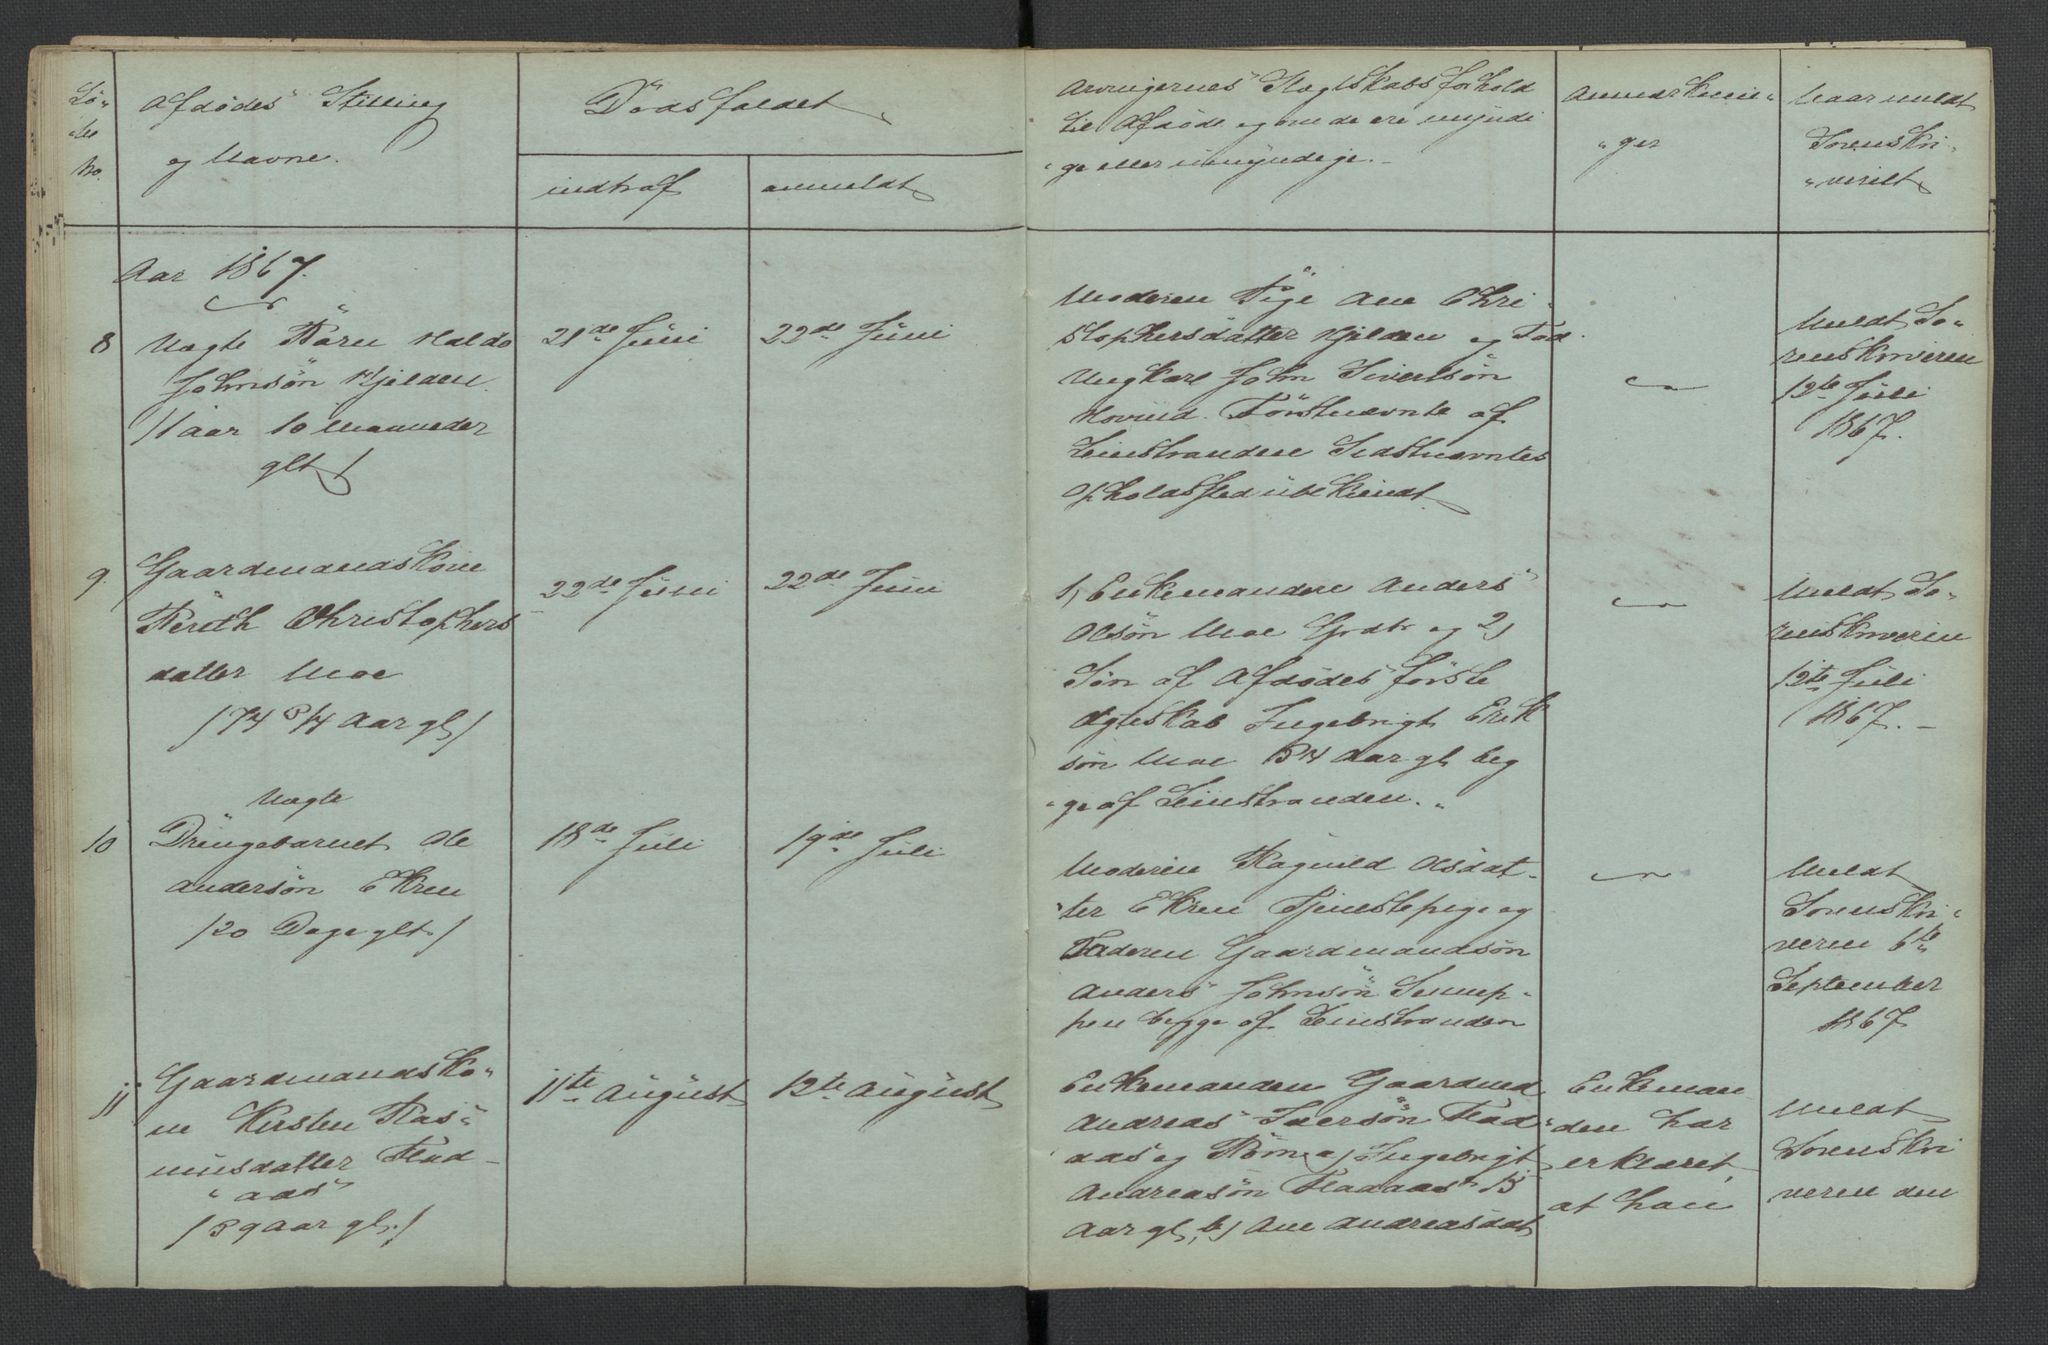 Lö-
be
No.
Afdödes Stilling
og Navne.
Dödsfaldet
indtraf
anmeldt
Arvingernes Slegtskabsforhold
til Afdöde og om de ere myndi
ge eller umyndige.
Anmærknin-
ger
Naar meldt
Sorenskri
veriet
Aar 1867.
8
Uægte Barn Haldo
Johnsön Kjelden
/1 aar 10 Maaneder
glt/
21de Juni
22de Juni
Moderen Pige Ane Chri
stophersdatter Kjelden og Fad.
Ungkarl John Sivertsön
Hovind. Förstnævnte af
Leinstranden Sidstnævntes
Opholdssted ubekiendt.
Meldt So-
renskriveren
12te Juli
1867.
9.
Gaardmandskone
Berith Christophers
datter Moe.
/74 3/4 Aar gl/
22de Juni
22de Juni
1, Enkemanden Anders
Olsön Moe Grdbr og 2,
Sön af Afdödes förste
Ægteskab Ingebrigt Erik
sön Moe 54 Aar gl beg
ge af Leinstranden.
Meldt So-
renskriveren
12te Juli
1867.
10
Uægte
Drengebarnet Ole
Andersön Ekren
/20 Dage glt/
18de Juli
19de Juli
Moderen Ragnild Olsdat-
ter Ekren Tjenestepige og
Faderen Gaardmandsön
Anders Johnsön Sneep-
pen begge af Leinstranden
Meldt
Sorenskri-
veren 6te
September
1867
11
Gaardmandsko-
ne Kirsten Ras-
musdatter Flad-
aas
/59 Aar gl./
11te August
12te August
Enkemanden Gaardmd
Andreas Iversön Flad
aas og Börn a, Ingebrigt
Andreasön Fladaas 15
Aar gl, b, Ane Andreasdat
Enkeman
den har
erklæret
at han
Meldt
Sorenskri
veren den